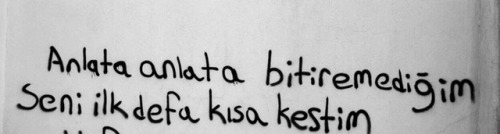 Anlata anlata bitiremediğim
Seni ilk defa kısa kestim